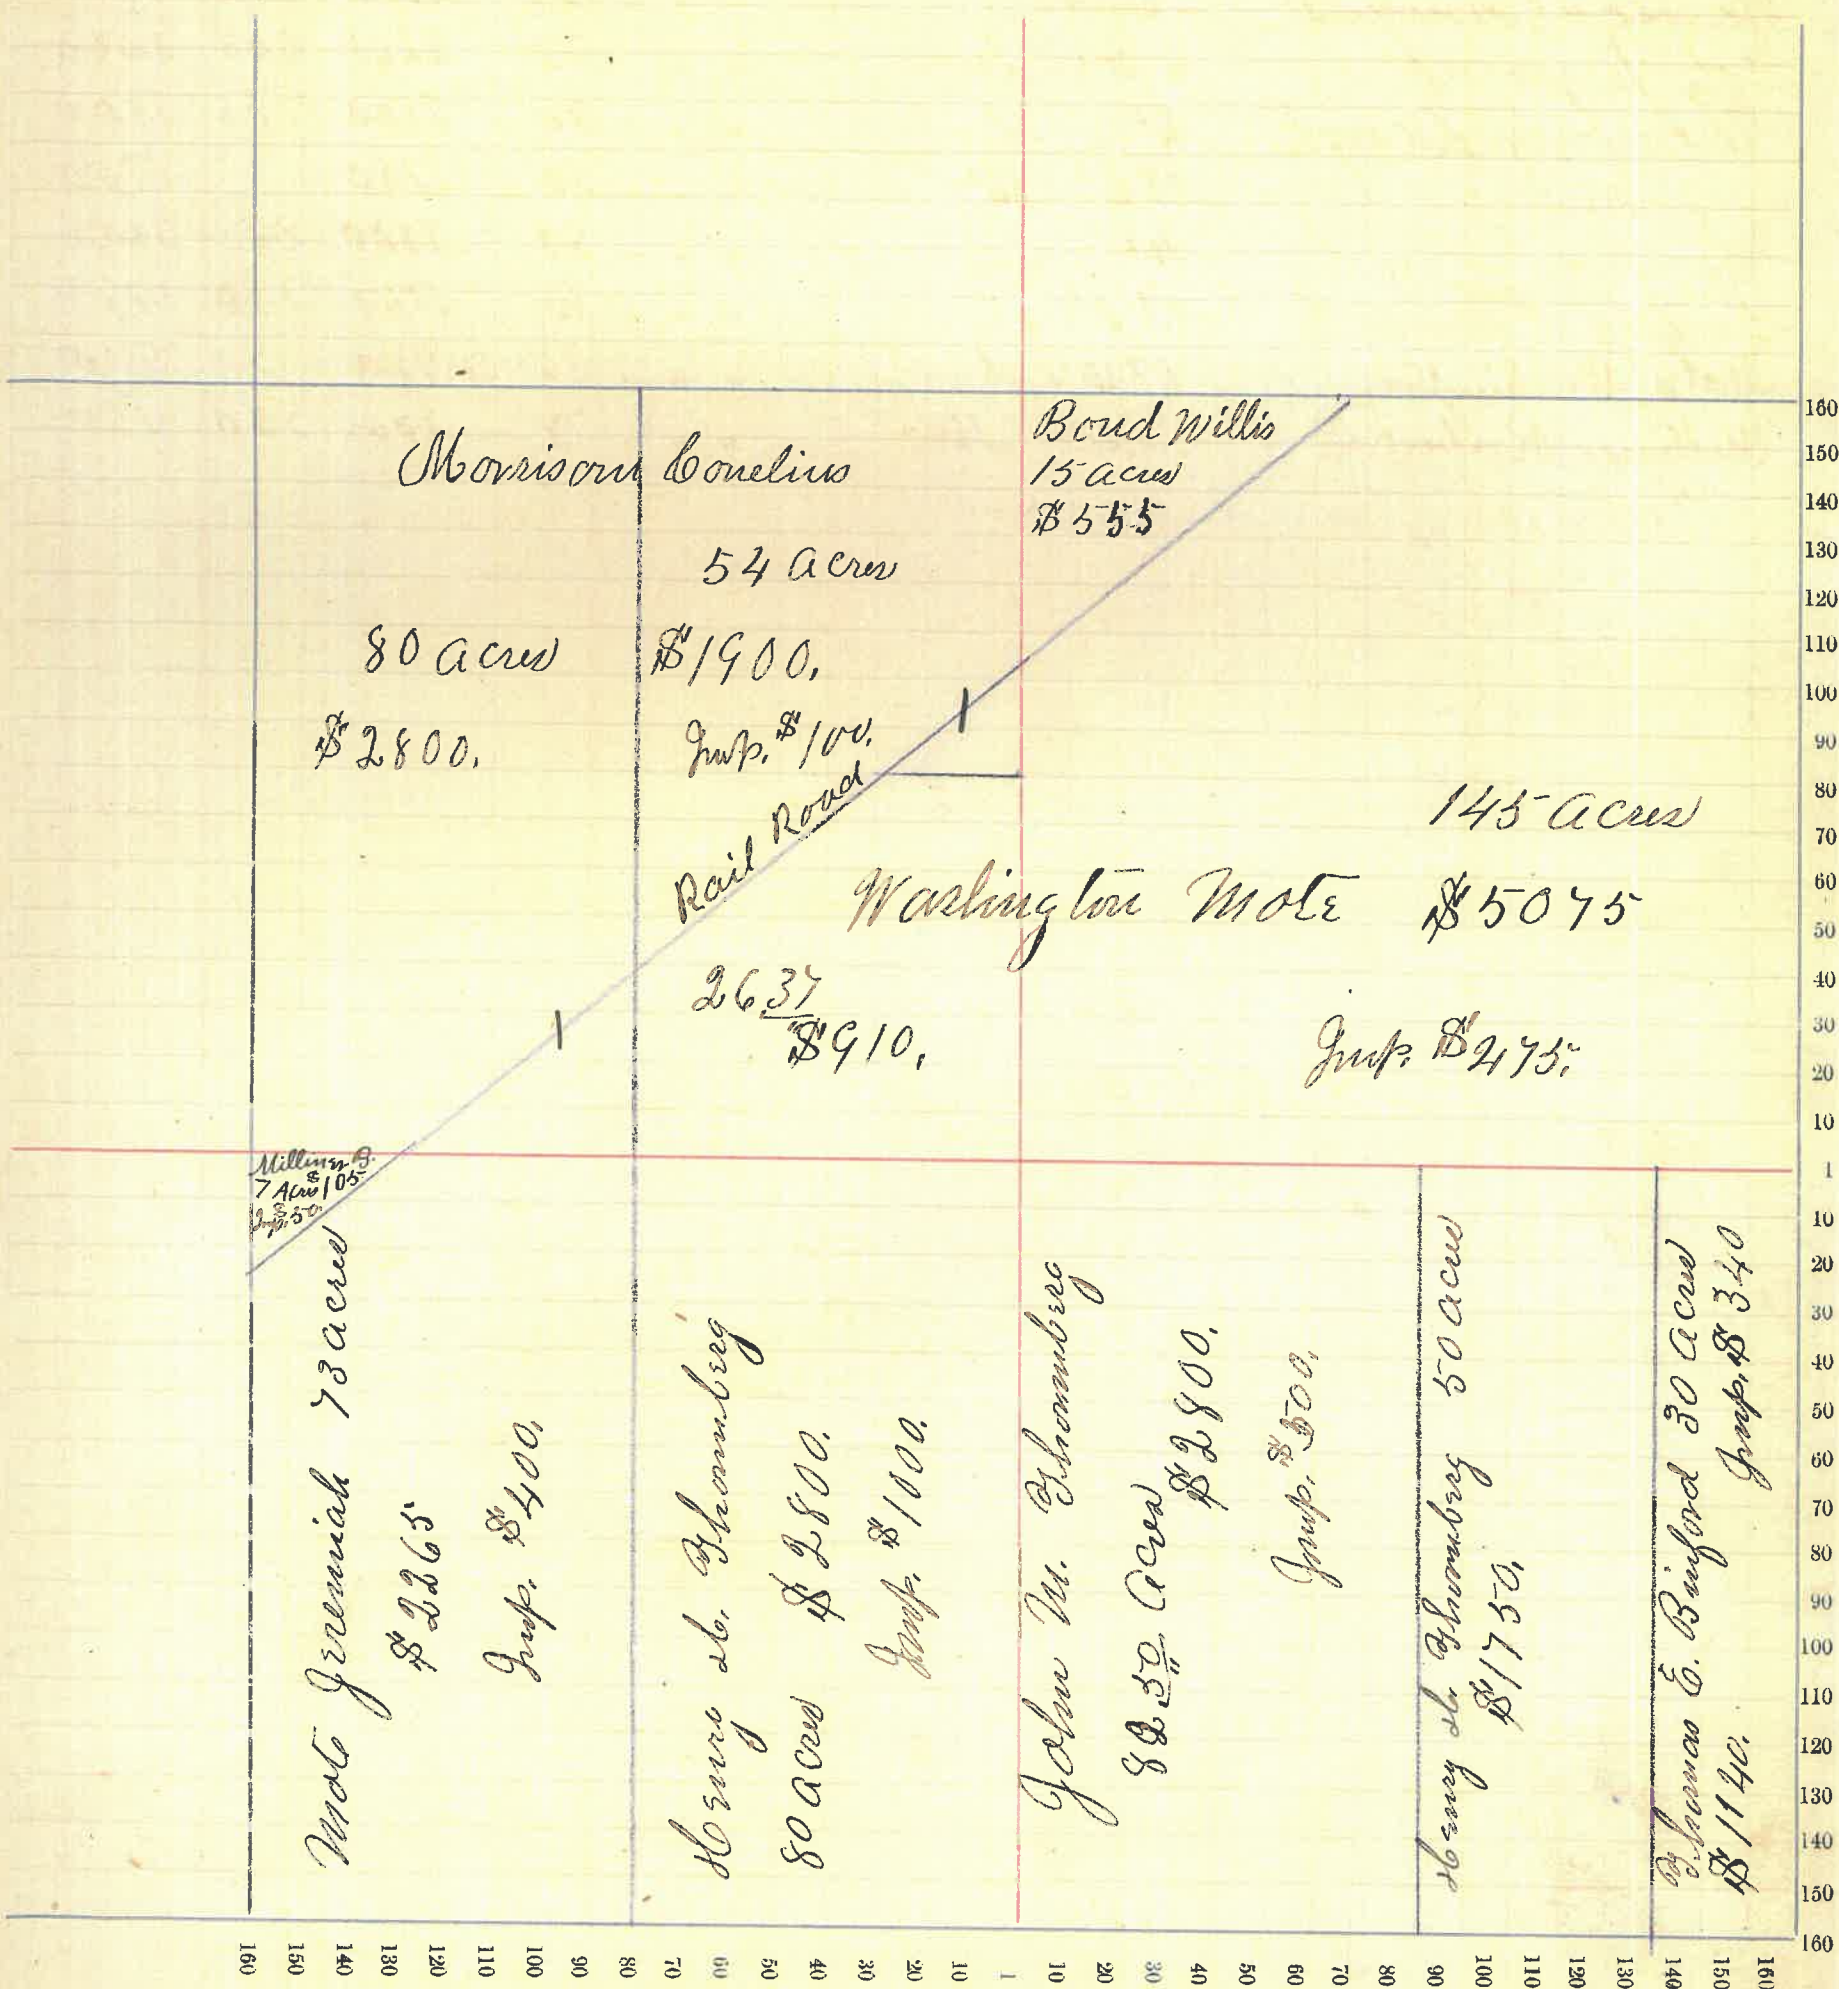 Morrison Conelius
54 Acres
80 acres
$1900.
$2800.
Imp. $100.
Bond Willis
15 acres
$555
Rail Road
145 Acres
Washington Mote $5075
26.37
$910.
Imp. $475.
Milliner B.
7 Acres $105
Imp. 50.
Mote Jeremiah 73 acres
$2265
Imp. $400.
Henry H. Thornberg
80 acres $2800.
Imp. $1000.
John M. Thornberg
82.50 Acres $2800.
Imp. $500.
Henry H. Thornberg 50 acres
$1750.
Thomas E. Binford 30 acres
$1140. Imp. $340
160
150
140
130
120
110
100
90
80
70
60
50
40
30
20
10
1
10
20
30
40
50
60
70
80
90
100
110
120
130
140
150
160
160 150 140 130 120 110 100 90 80 70 60 50 40 30 20 10 1 10 20 30 40 50 60 70 80 90 100 110 120 130 140 150 160